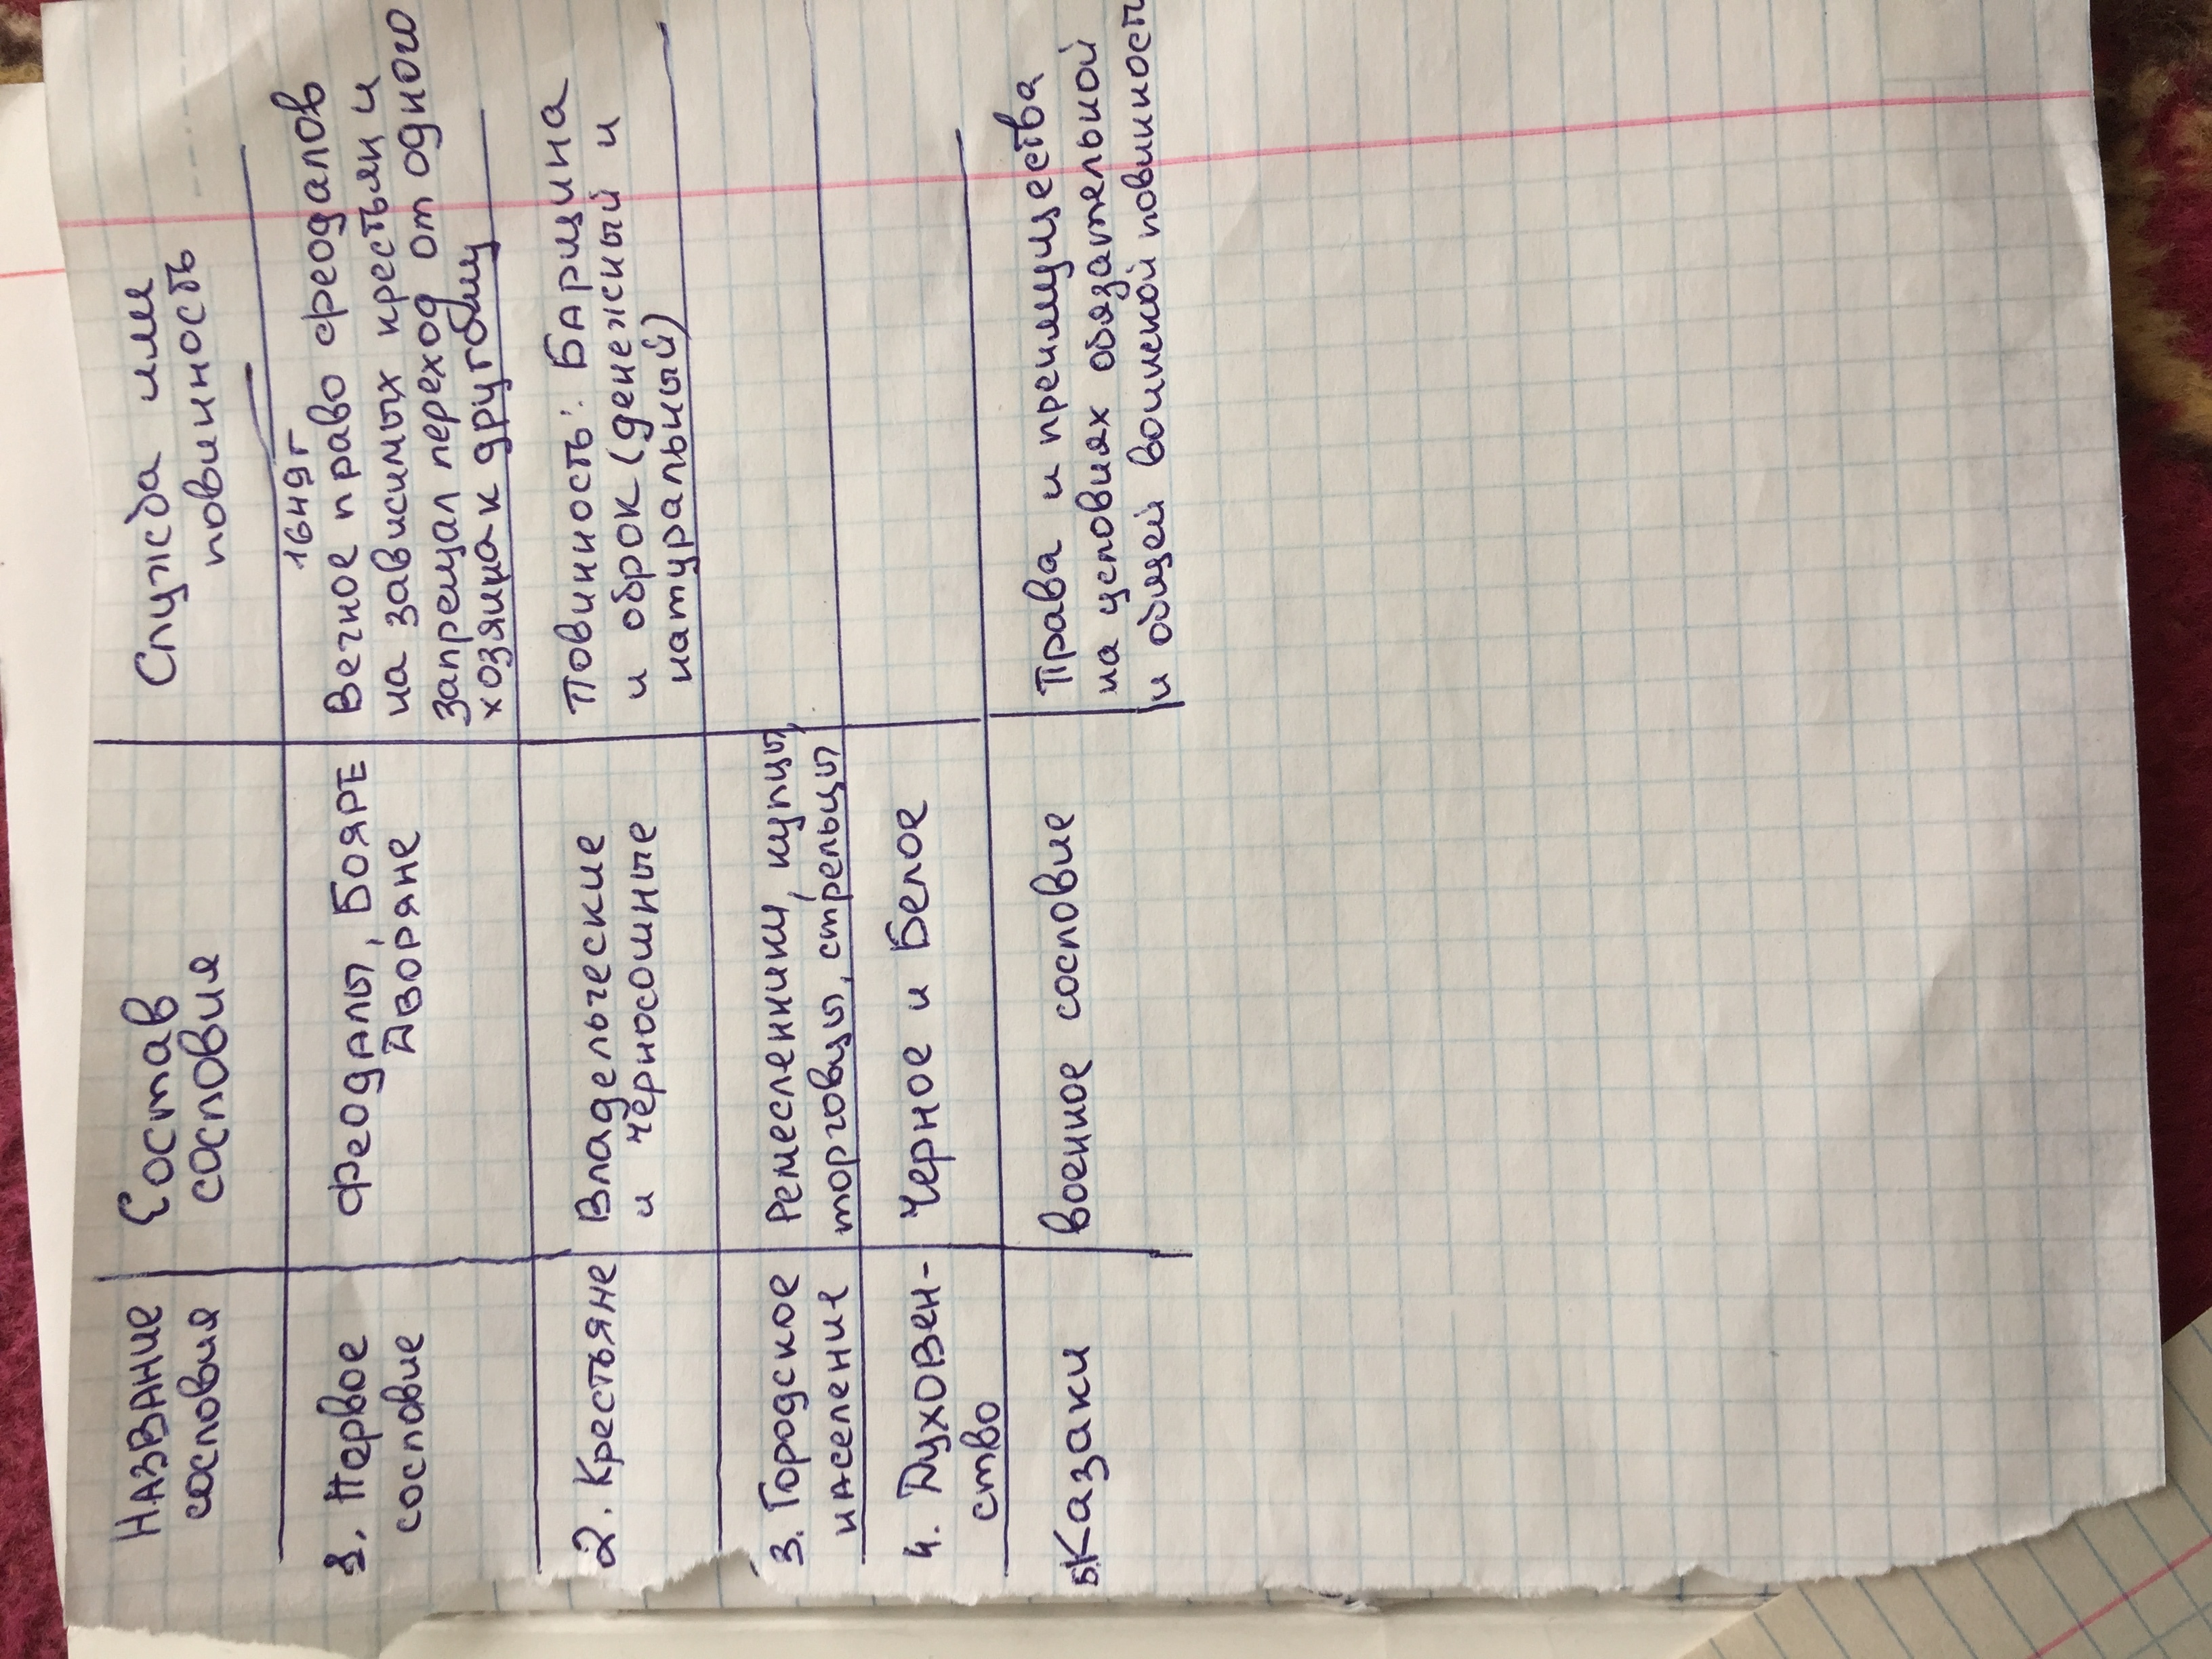 Название
сословия
Состав
сословия
Служба или
повинность
1. Первое
сословие
Феодалы, Бояре
Дворяне
1649г
Вечное право феодалов
на зависимых крестьян и
запрещал переход от одного
хозяина к другому
2. Крестьяне
Владельческие
и чёрносошные
Повинность: Барщина
и оброк (денежный и
натуральный)
3. Городское
население
Ремесленники, купцы,
торговцы, стрельцы
4. Духовен-
ство
Черное и Белое
5. Казаки
военное сословие
Права и преимущества
на условиях обязательной
и общей воинской повинност